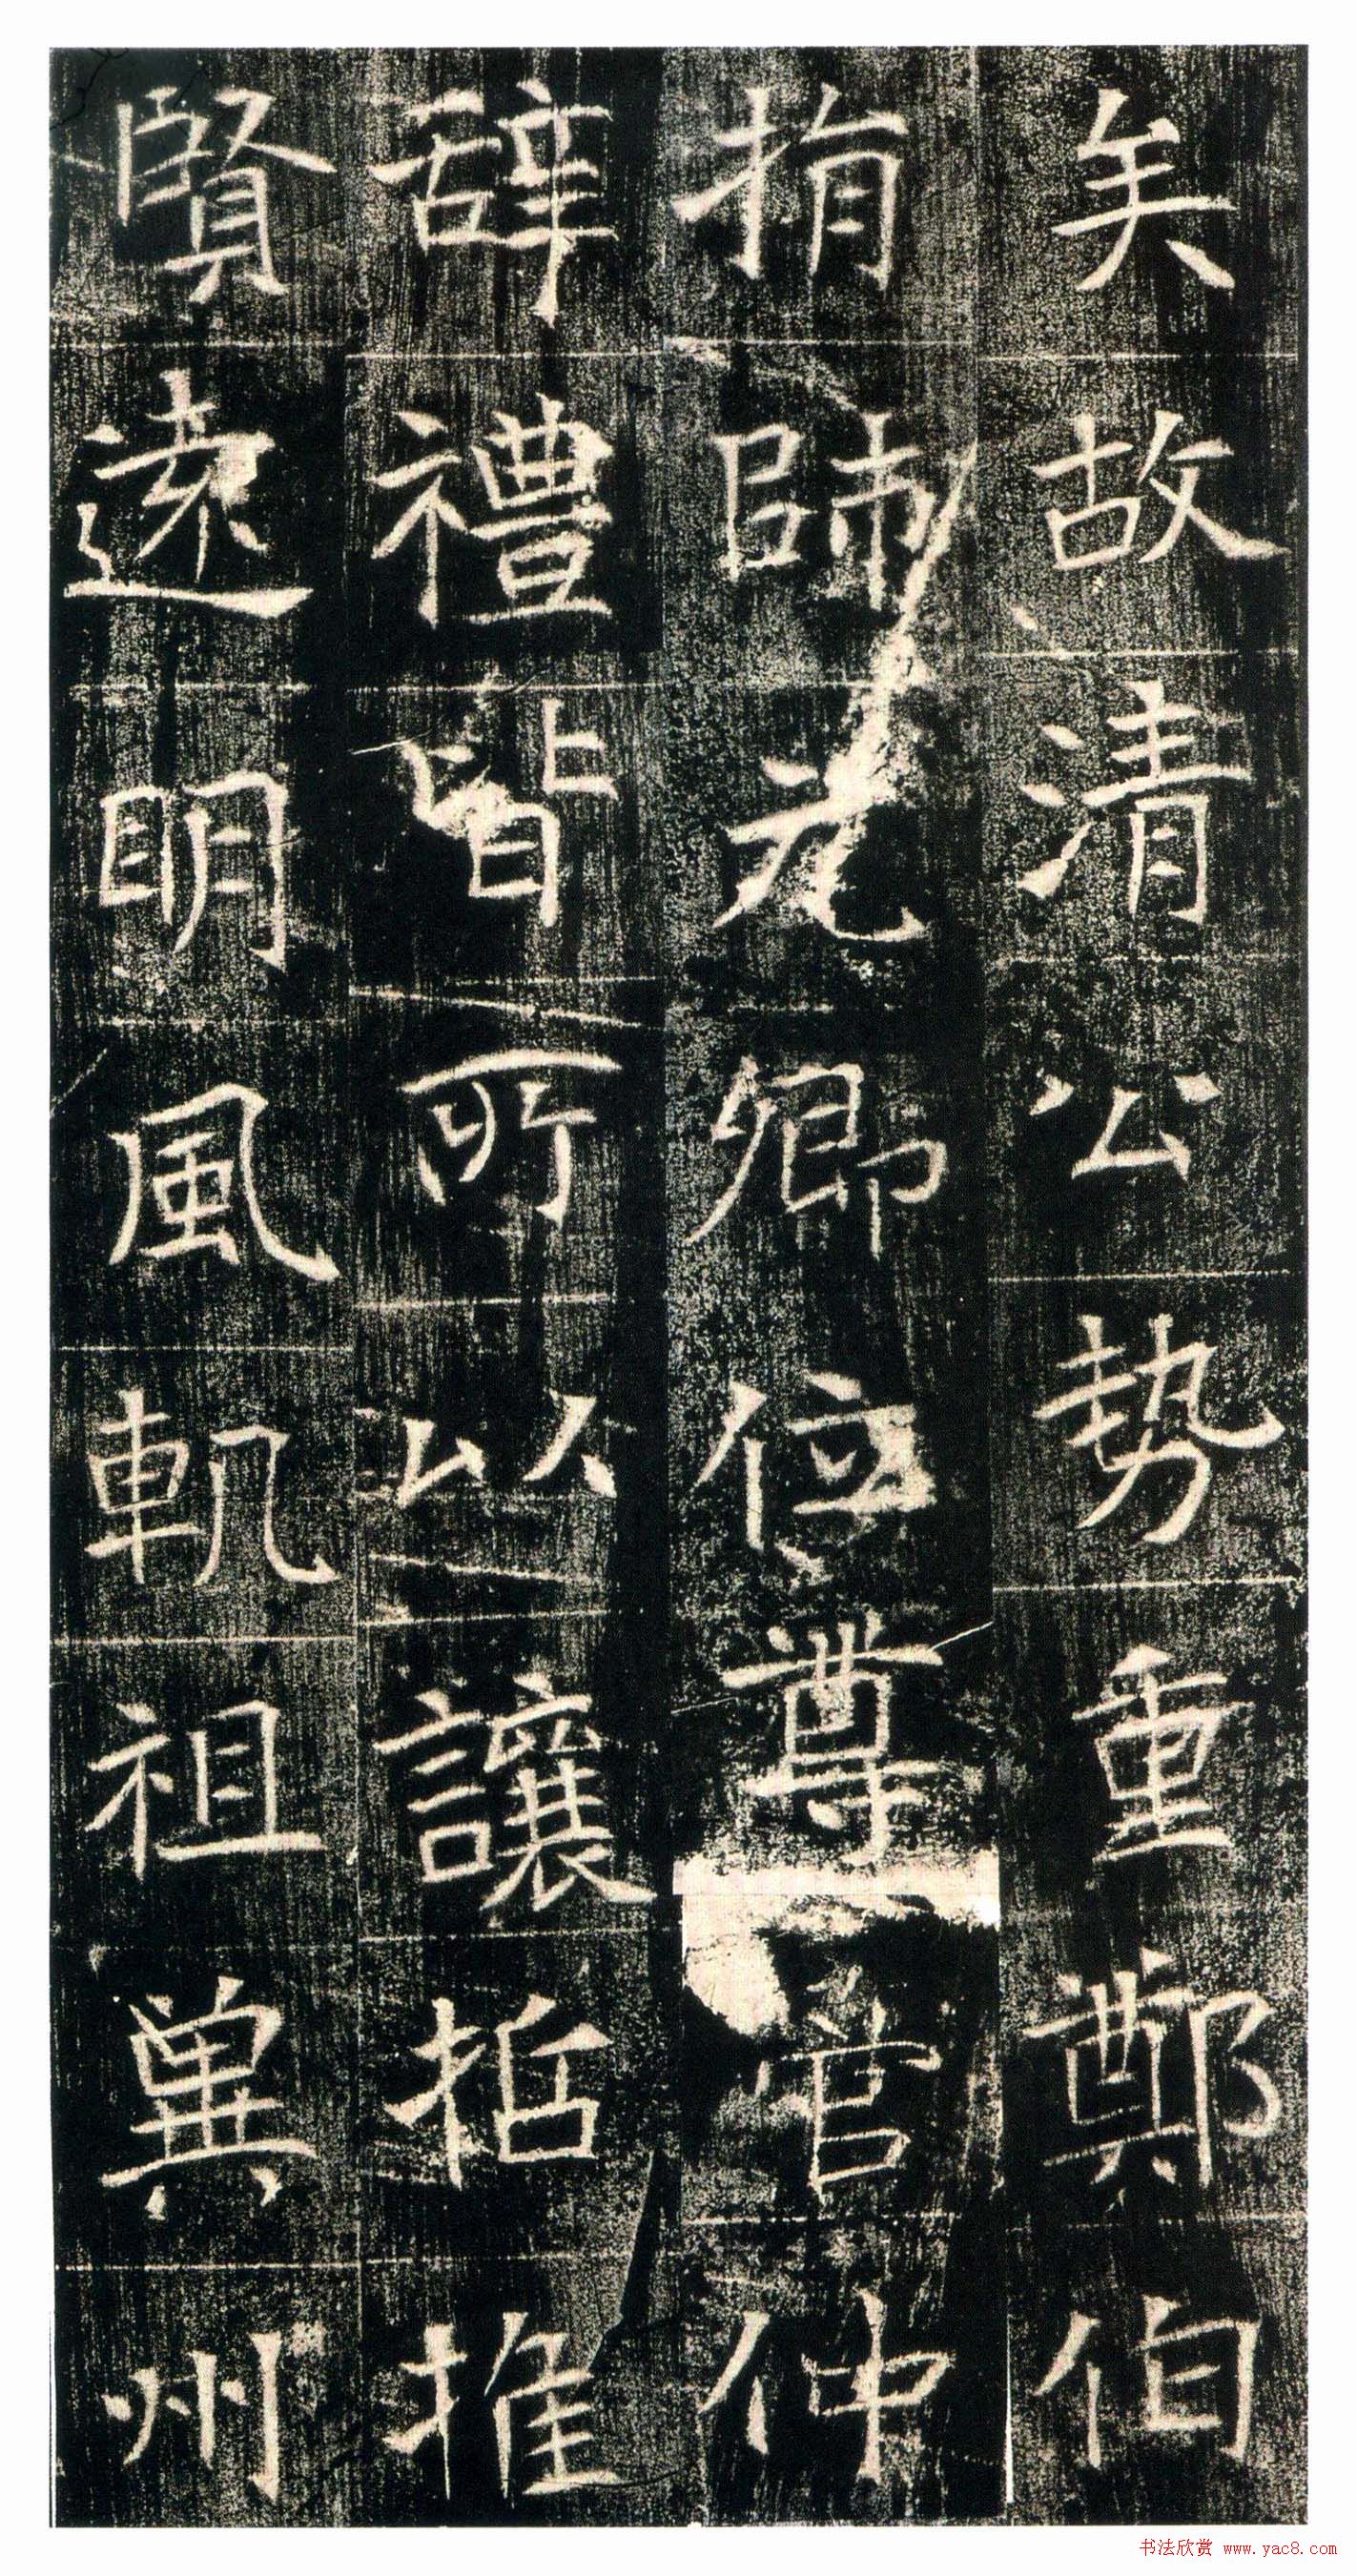 矣故清公勢重鄭伯
捐師元卿位尊管仲
辞禮皆所以讓哲推
賢遠明風軌祖冀州
书法欣赏 www.yac8.com